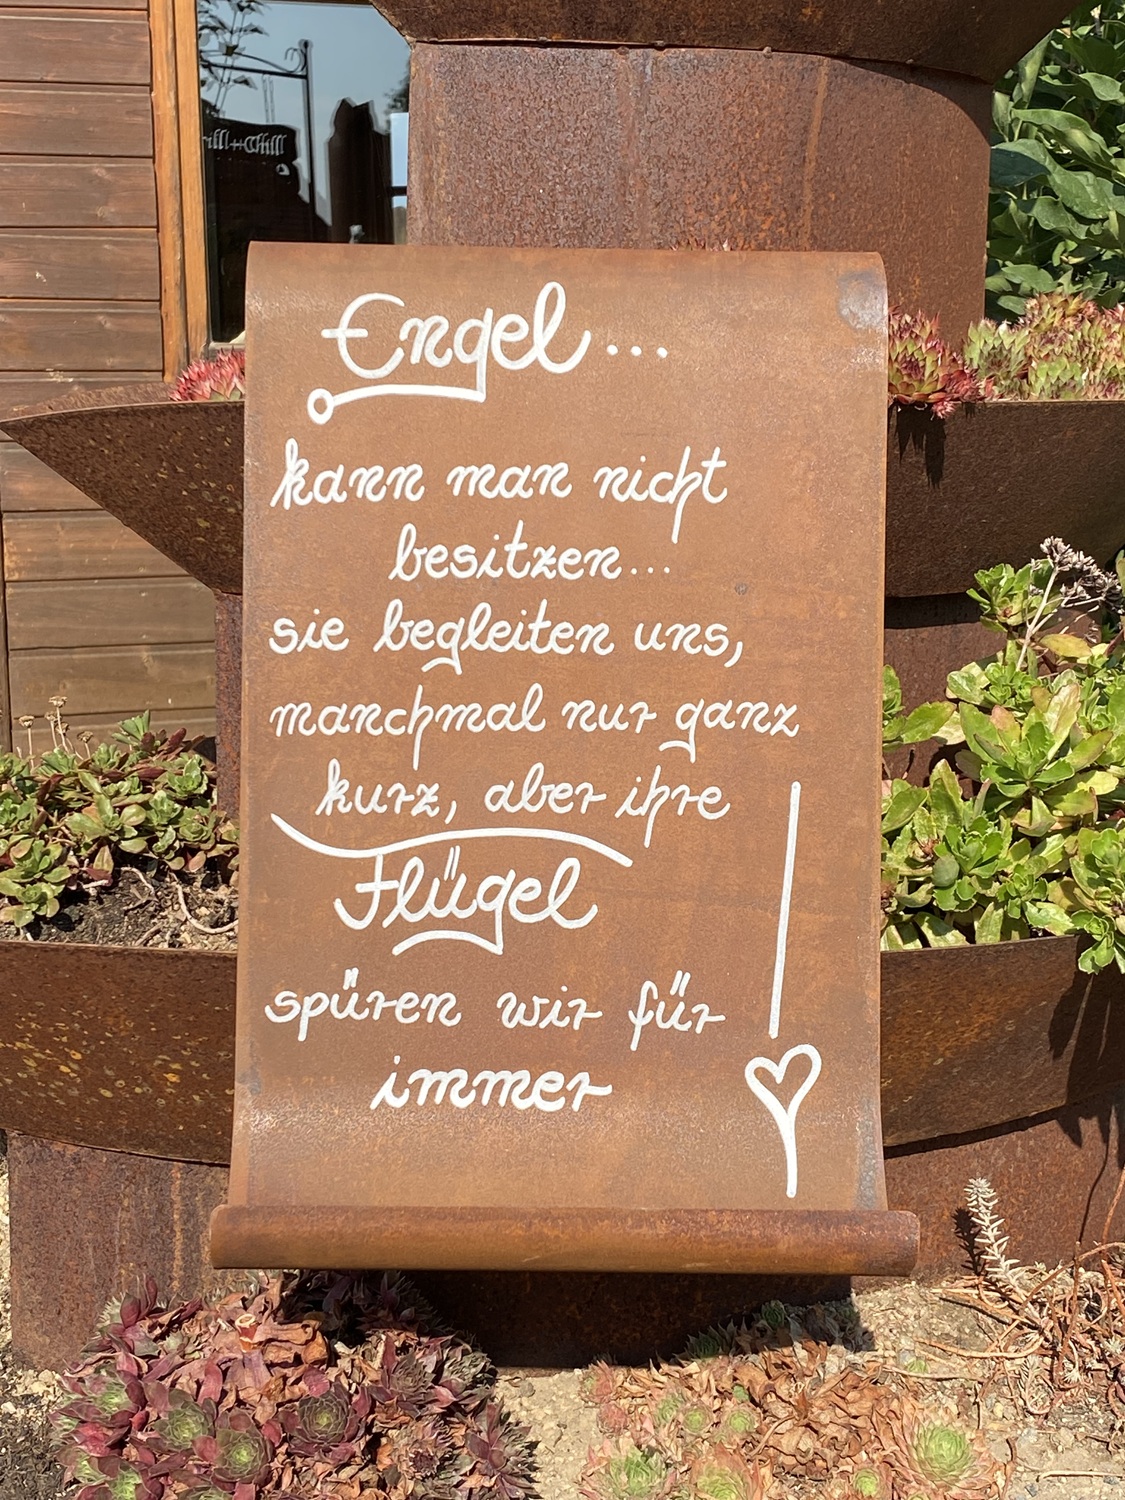 Engel...
kann man nicht
besitzen...
sie begleiten uns,
manchmal nur ganz
kurz, aber ihre
Flügel
spüren wir für
immer